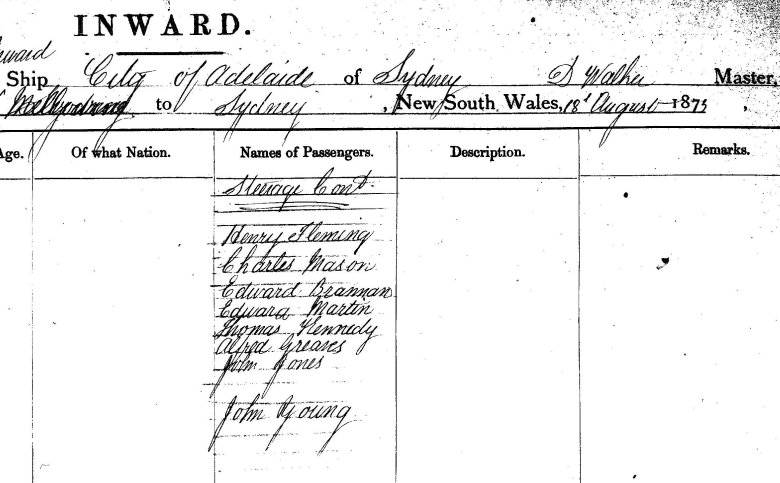 INWARD.
Ship City of Adelaide of Sydney D Walker Master,
Melbourne to Sydney, New South Wales, 18t August 1875,
Age. Of what Nation. Names of Passengers. Description. Remarks.
Steerage Cont.
Henry Fleming
Charles Mason
Edward Brannan
Edward Martin
Thomas Kennedy
Alfred Greaves
John Jones
John Young